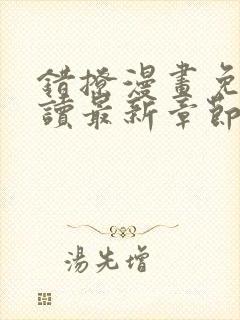 錯撩漫畫免
讀最新章節
湯先增